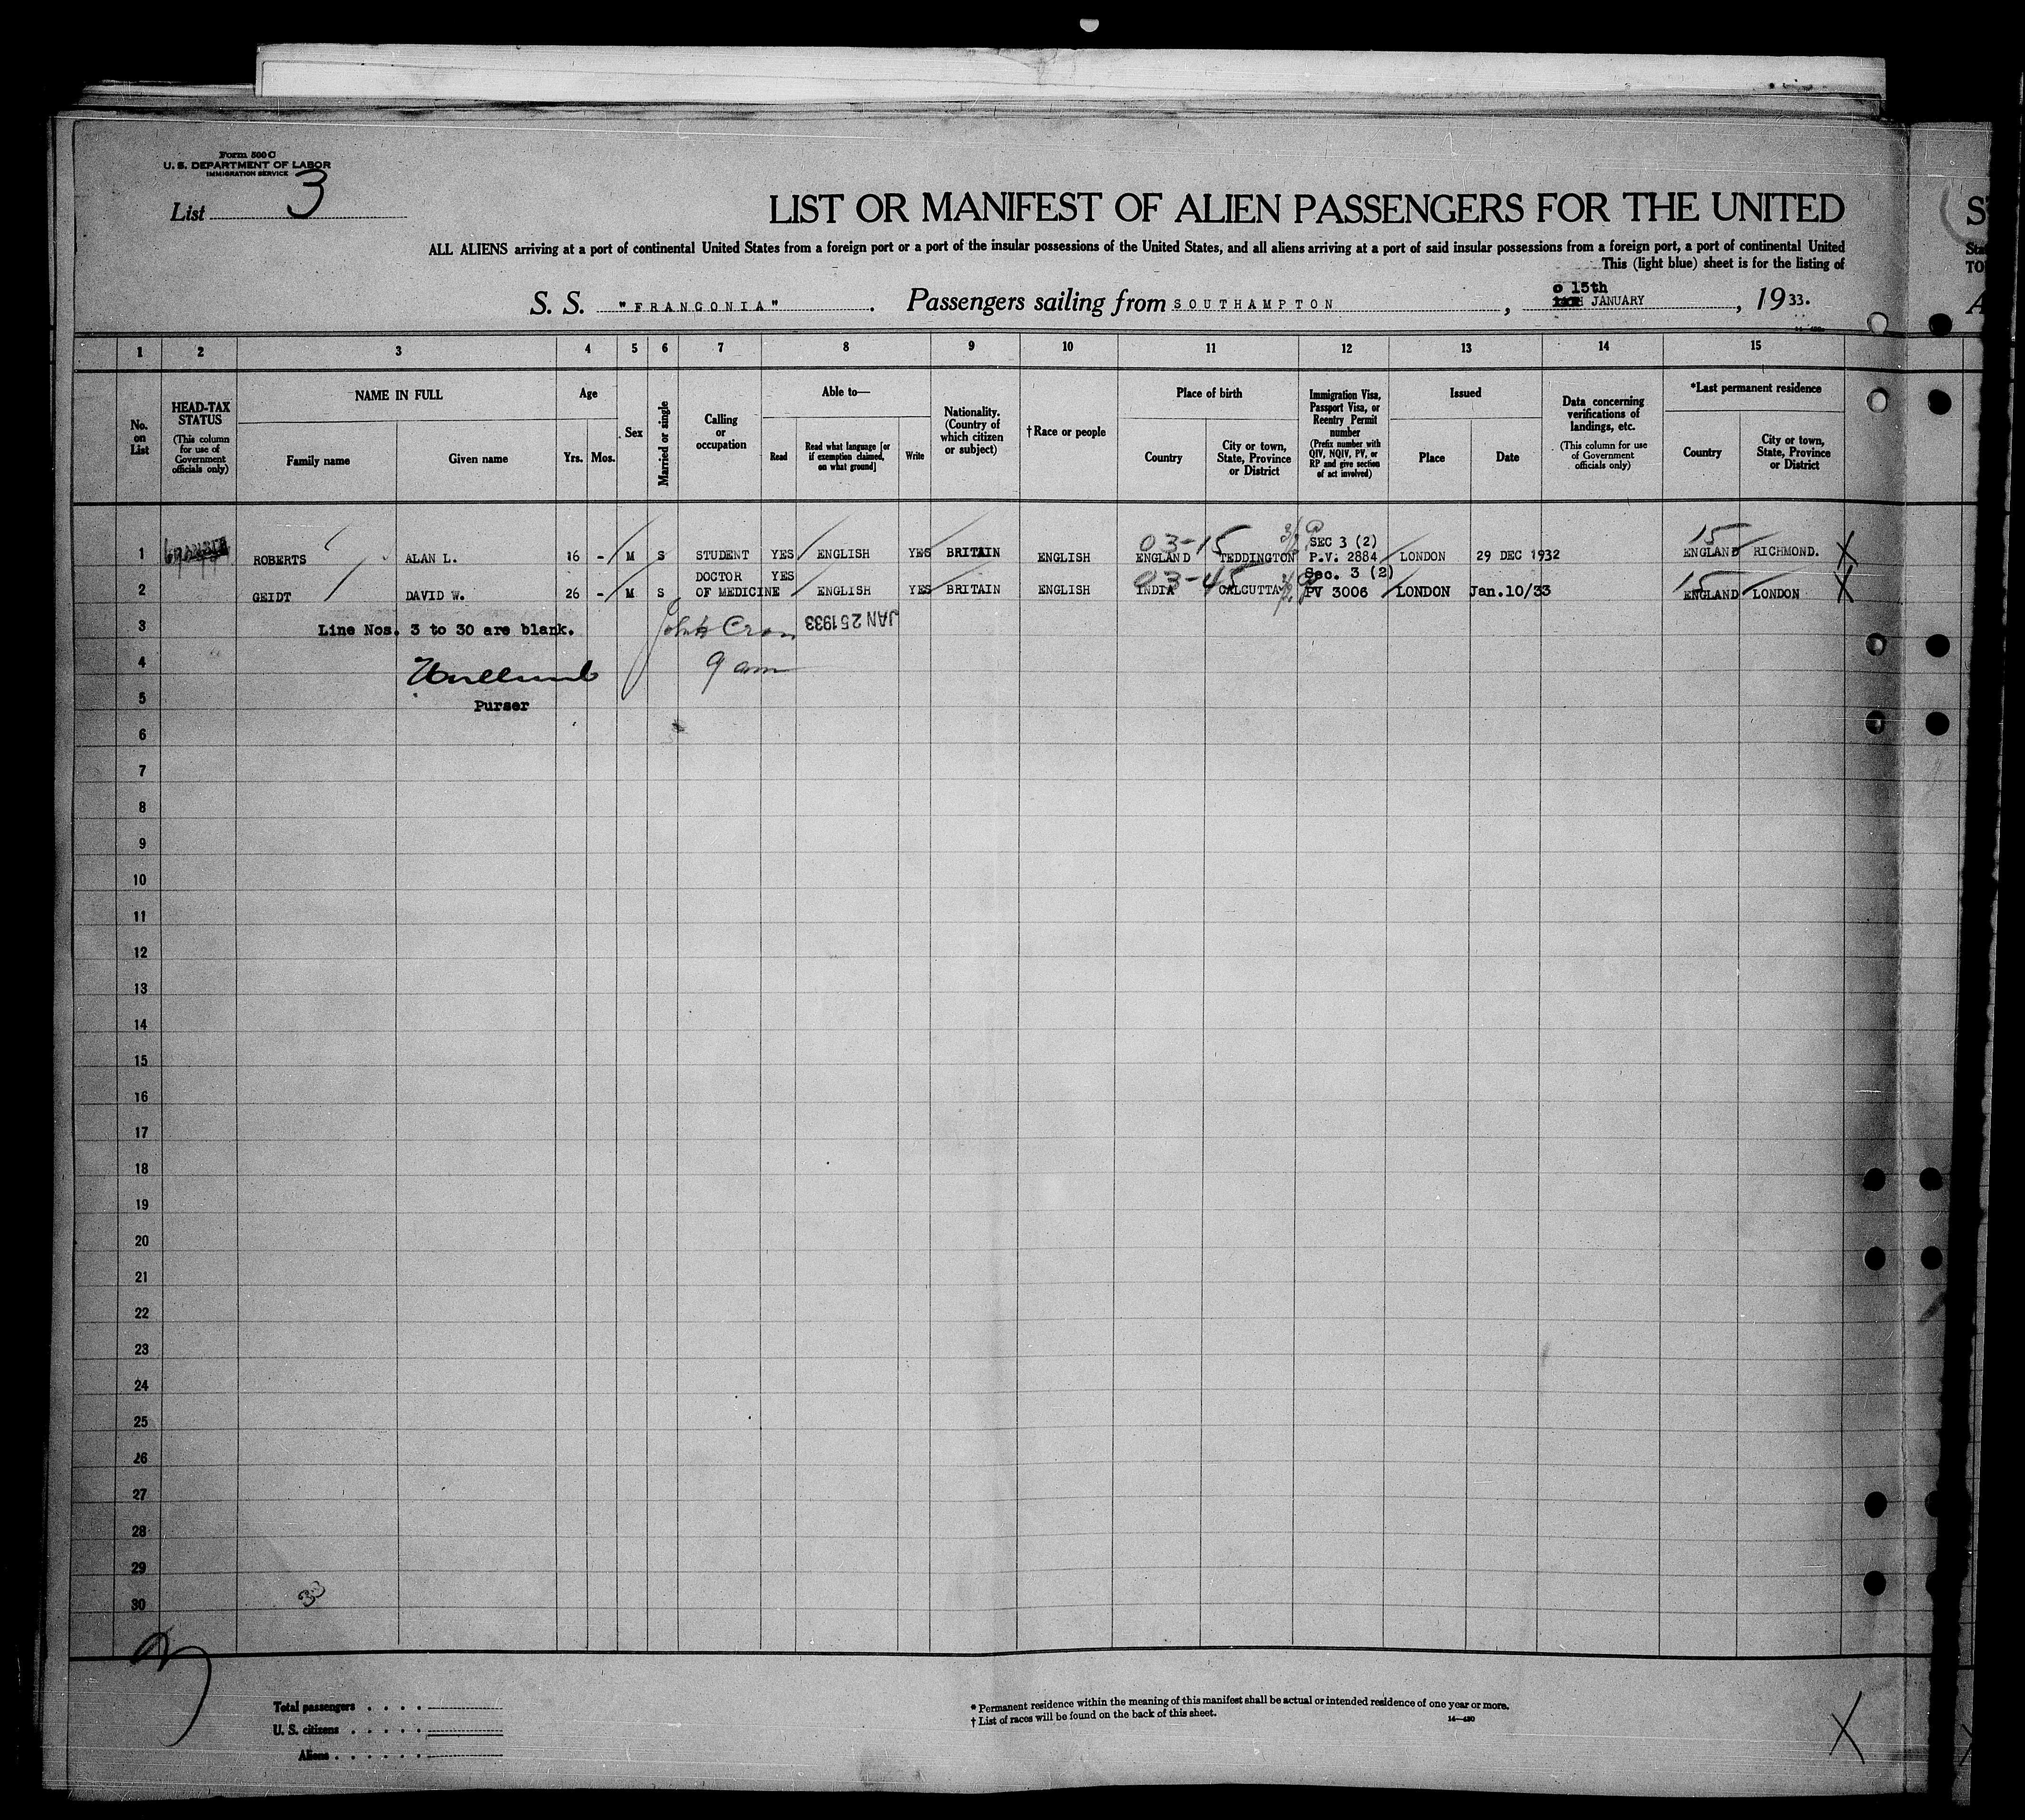 Form 500 C
U. S. DEPARTMENT OF LABOR
IMMIGRATION SERVICE
List 3
LIST OR MANIFEST OF ALIEN PASSENGERS FOR THE UNITED
ALL ALIENS arriving at a port of continental United States from a foreign port or a port of the insular possessions of the United States, and all aliens arriving at a port of said insular possessions from a foreign port, a port of continental United
This (light blue) sheet is for the listing of
S. S. "FRANCONIA". Passengers sailing from SOUTHAMPTON, 15th JANUARY, 1933.
1 2 3 4 5 6 7 8 9 10 11 12 13 14 15
No. on List
HEAD-TAX STATUS
(This column for use of Government officials only)
NAME IN FULL
Family name
Given name
Age
Yrs. Mos.
Sex
Married or single
Calling or occupation
Able to—
Read
Read what language [or if exemption claimed, on what ground]
Write
Nationality. (Country of which citizen or subject)
†Race or people
Place of birth
Country
City or town, State, Province or District
Immigration Visa, Passport Visa, or Reentry Permit number
(Prefix number with QIV, NQIV, PV, or RP and give section of act involved)
Issued
Place
Date
Data concerning verifications of landings, etc.
(This column for use of Government officials only)
*Last permanent residence
Country
City or town, State, Province or District
03-15 SEC 3 (2) 15
1 ROBERTS ALAN L. 16 - M S STUDENT YES ENGLISH YES BRITAIN ENGLISH ENGLAND TEDDINGTON P.V. 2884 LONDON 29 DEC 1932 ENGLAND RICHMOND. X
DOCTOR YES 03-45 Sec. 3 (2) 15
2 GEIDT DAVID W. 26 - M S OF MEDICINE ENGLISH YES BRITAIN ENGLISH INDIA CALCUTTA PV 3006 LONDON Jan.10/33 ENGLAND LONDON X
3 Line Nos. 3 to 30 are blank. John JAN 25 1933
4 9 am
5 Purser
6
7
8
9
10
11
12
13
14
15
16
17
18
19
20
21
22
23
24
25
26
27
28
29
30
Total passengers . . . .
U. S. citizens . . . . .
Aliens . . . . . .
* Permanent residence within the meaning of this manifest shall be actual or intended residence of one year or more.
† List of races will be found on the back of this sheet.
14—430
X